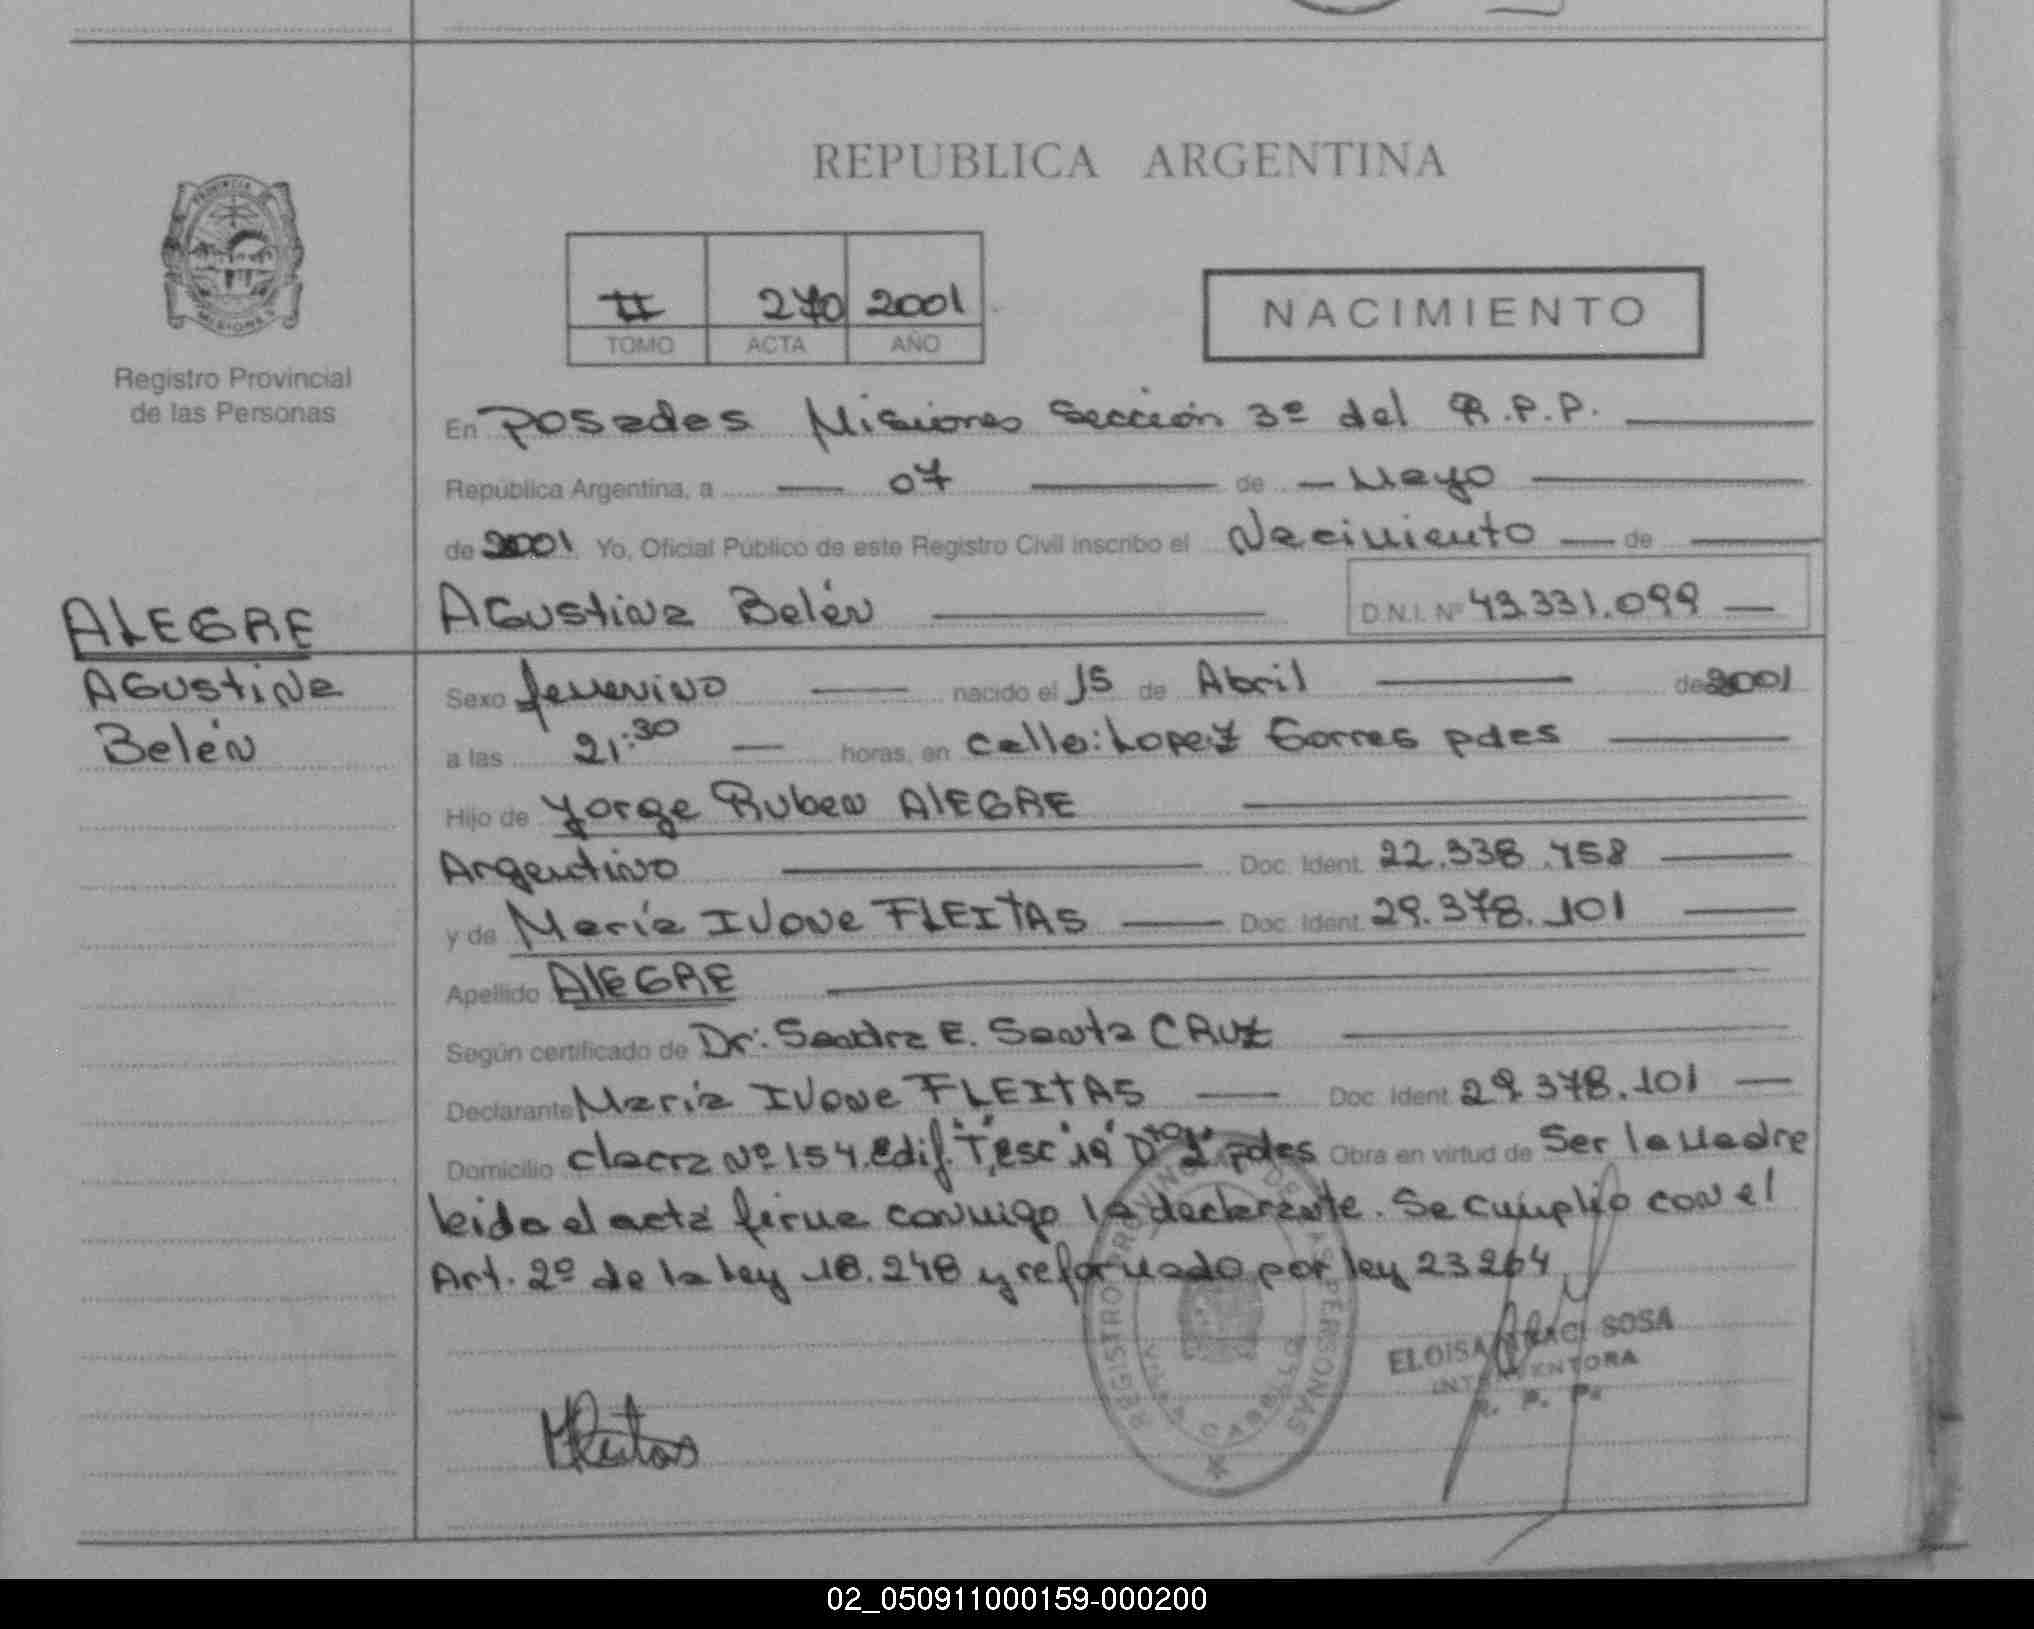 REPUBLICA ARGENTINA
PROVINCIA
MISIONES
Registro Provincial
de las Personas
II 270 2001
TOMO ACTA AÑO
NACIMIENTO
En Posadas Misiones Sección 3º del R.P.P.
República Argentina, a 07 de Mayo
de 2001 Yo, Oficial Público de este Registro Civil inscribo el Nacimiento de
ALEGRE
Agustina
Belén
Agustina Belén D.N.I. Nº 43.331.099
Sexo femenino nacido el 15 de Abril de 2001
a las 21:30 horas, en calle: Lopez Torres pdas
Hijo de Jorge Ruben ALEGRE
Argentino Doc. Ident. 22.338.458
y de María Ivone FLEITAS Doc. Ident. 29.378.101
Apellido ALEGRE
Según certificado de Dr: Sandra E. Santa CRUZ
Declarante María Ivone FLEITAS Doc. Ident. 29.378.101
Domicilio chacra Nº 154. edif. "T", esc "19" Dto "1" pdas Obra en virtud de Ser la Madre
leida el acta firma conmigo la declarante. Se cumplio con el
Art. 2º de la ley 18.248 y reformado por ley 23264
REGISTRO PROVINCIAL DE LAS PERSONAS
ELOISA SOSA
INTERVENTORA
R. P. P.
MFleitas
02_050911000159-000200